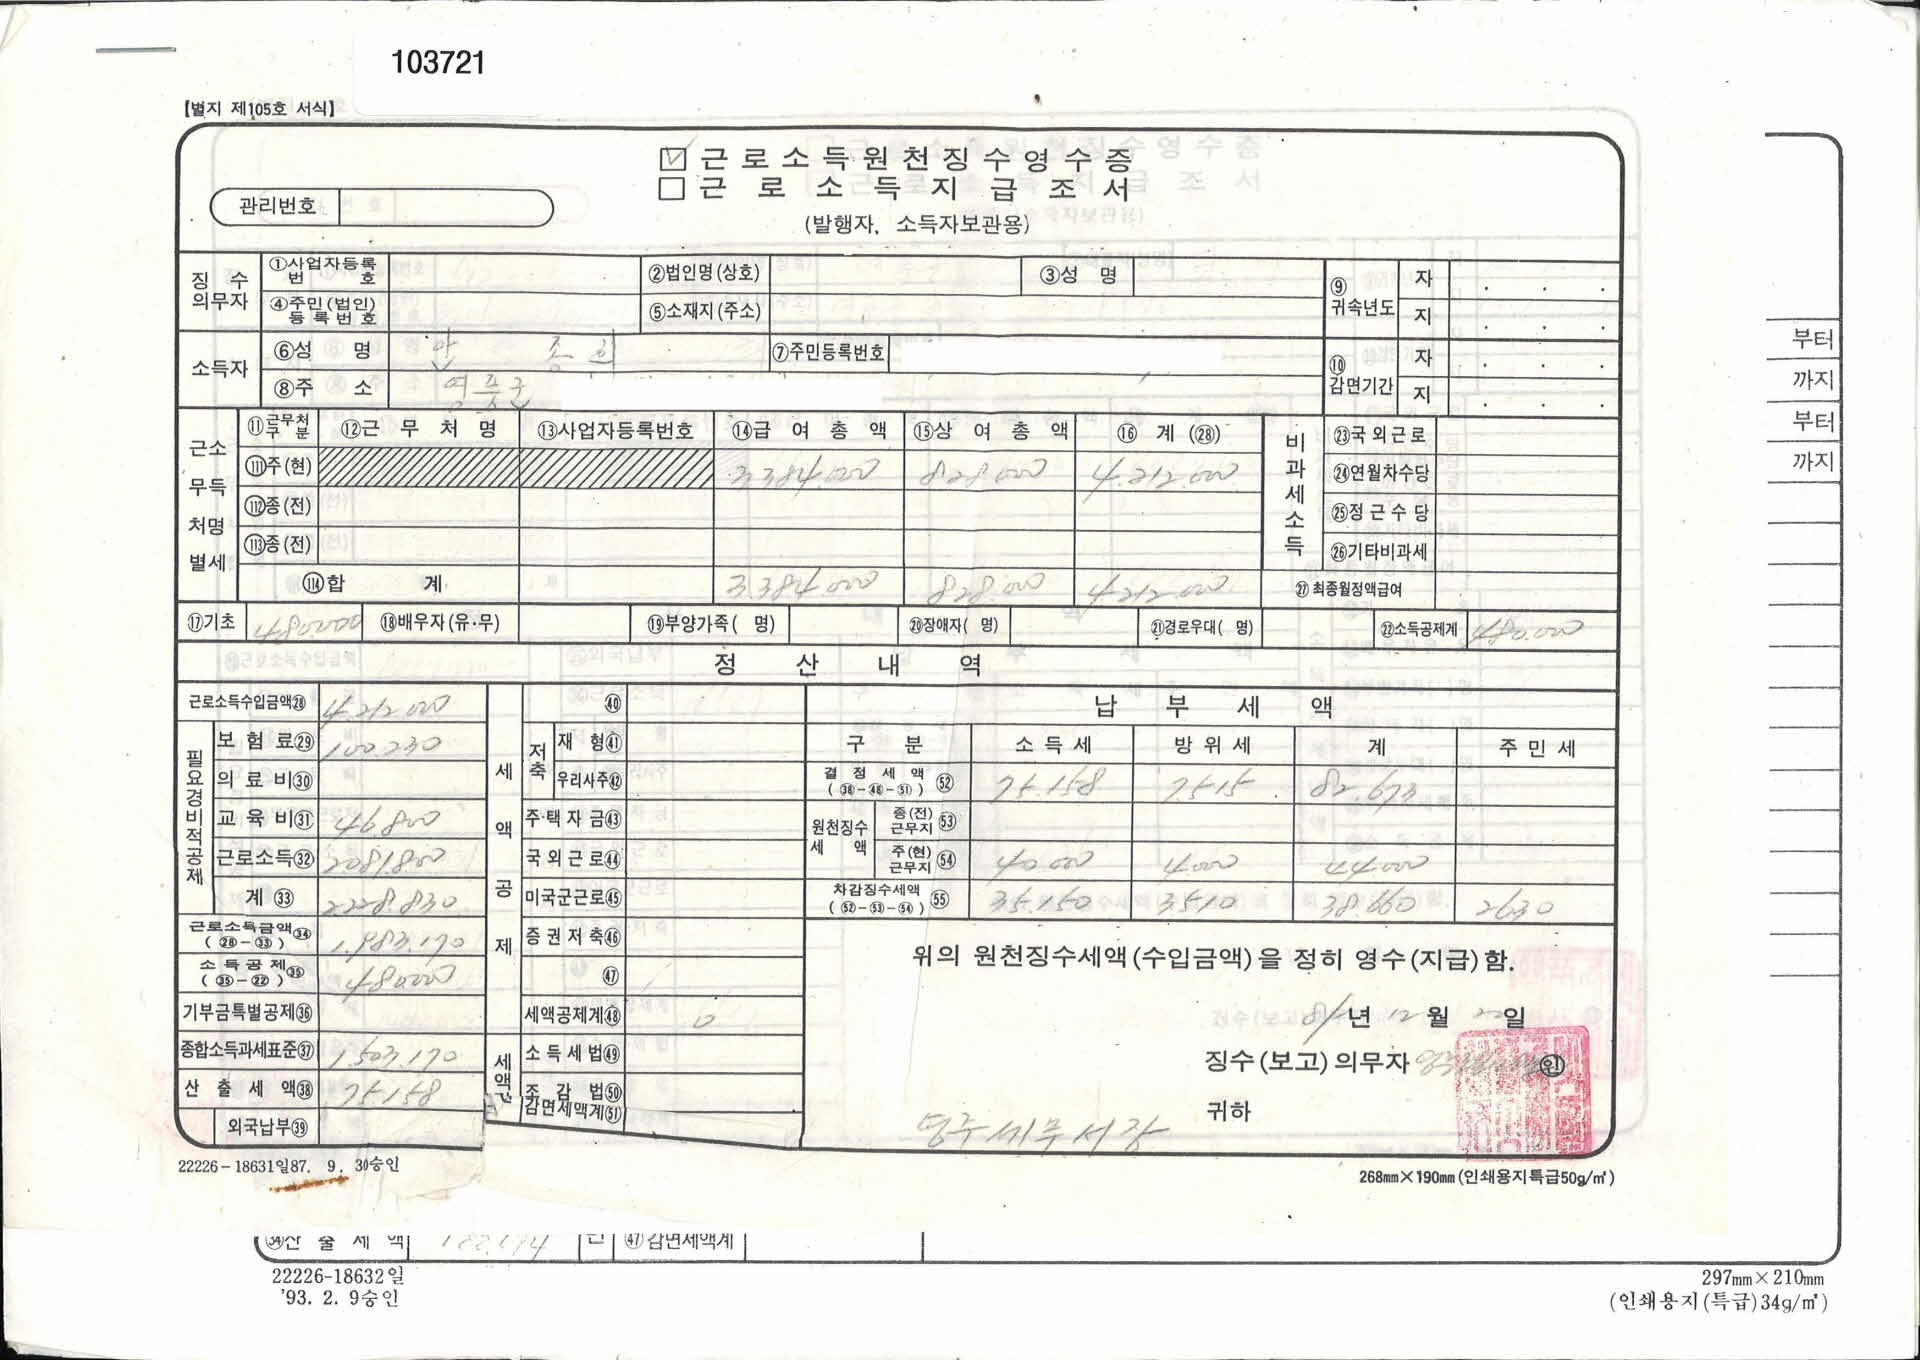 103721
【별지 제105호 서식】
☑ 근로소득원천징수영수증
□ 근로소득지급조서
(발행자, 소득자보관용)
관리번호
징수의무자 ①사업자등록번호 ②법인명(상호) ③성 명 ⑨귀속년도 자 . . .
④주민(법인)등록번호 ⑤소재지(주소) 지 . . .
소득자 ⑥성 명 안 종 희 ⑦주민등록번호 ⑩감면기간 자 . . .
⑧주 소 영풍군 지 . . .
근무처별소득명세 ⑪근무처구분 ⑫근무처명 ⑬사업자등록번호 ⑭급여총액 ⑮상여총액 ⑯계(28) 비과세소득 ㉓국외근로
⑪⑴주(현) 3.384.000 828.000 4.212.000 ㉔연월차수당
⑪⑵종(전) ㉕정근수당
⑪⑶종(전) ㉖기타비과세
⑪⑷합 계 3.384.000 828.000 4.212.000 ㉗최종월정액급여
⑰기초 480.000 ⑱배우자(유·무) ⑲부양가족( 명) ⑳장애자( 명) ㉑경로우대( 명) ㉒소득공제계 480.000
정 산 내 역
근로소득수입금액㉘ 4.212.000 ㊵ 납 부 세 액
필요경비적공제 보험료㉙ 100.230 세액공제 저축 재형㊶ 구 분 소득세 방위세 계 주민세
의료비㉚ 우리사주㊷ 결정세액(㊳-㊽-51) 52 75.158 7.515 82.673
교육비㉛ 46.800 주·택자금㊸ 원천징수세액 종(전)근무지 53
근로소득㉜ 2081.800 국외근로㊹ 주(현)근무지 54 40.000 4.000 44.000
계㉝ 2228.830 미국군근로㊺ 차감징수세액(52-53-54) 55 35.150 3510 38.660 2630
근로소득금액㉞(㉘-㉝) 1.983.170 증권저축㊻
소득공제㉟(㉟-㉒) 480000 ㊼
기부금특별공제㊱ 세액공제계㊽ 0
종합소득과세표준㊲ 1.503.170 소득세법㊾
산출세액㊳ 75158 조감법㊿
외국납부㊴ 감면세액계51
위의 원천징수세액(수입금액)을 정히 영수(지급)함.
년 12월 22일
징수(보고)의무자 인
영주세무서장 귀하
22226-18631일87. 9. 30승인
268㎜×190㎜(인쇄용지특급50g/㎡)
부터
까지
부터
까지
㉞산출세액 ㊼감면세액계
22226-18632일
'93. 2. 9승인
297㎜×210㎜
(인쇄용지(특급)34g/㎡)